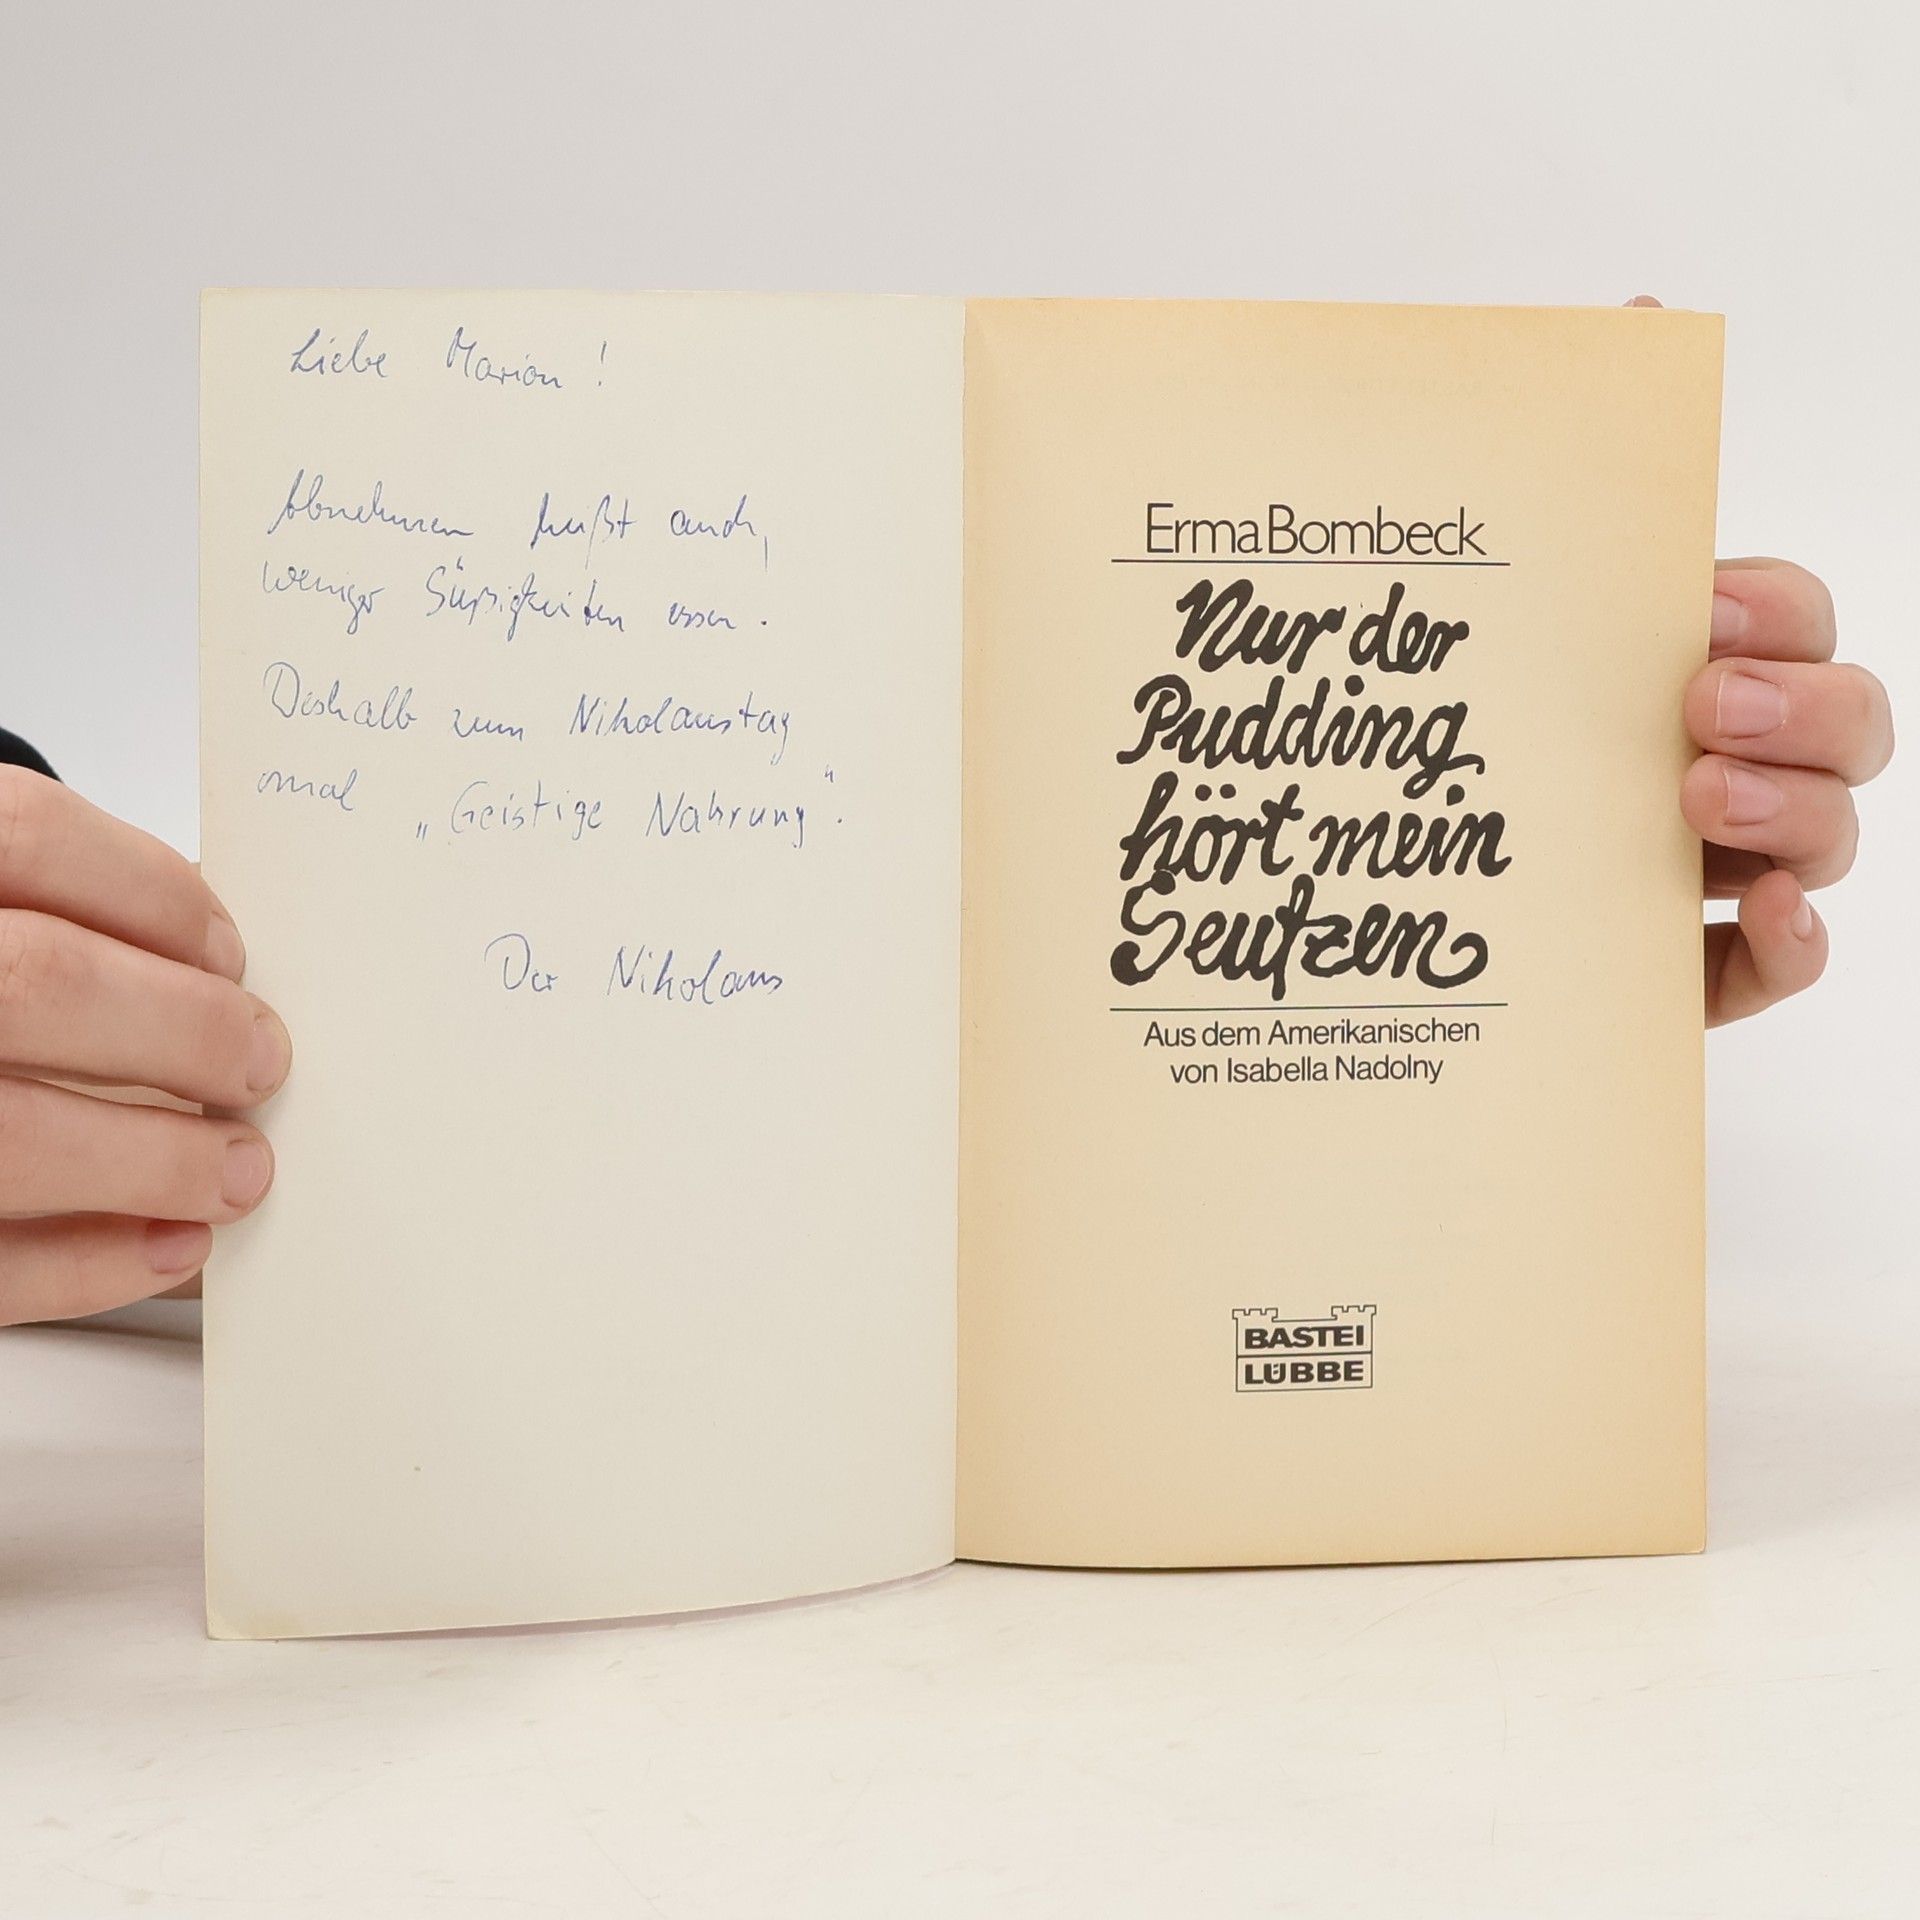 Liebe Marion !
Abnehmen heißt auch,
weniger Süßigkeiten essen.
Deshalb zum Nikolaustag
mal „Geistige Nahrung“.
Der Nikolaus
Erma Bombeck
Nur der
Pudding
hört mein
Seufzen
Aus dem Amerikanischen
von Isabella Nadolny
BASTEI
LÜBBE